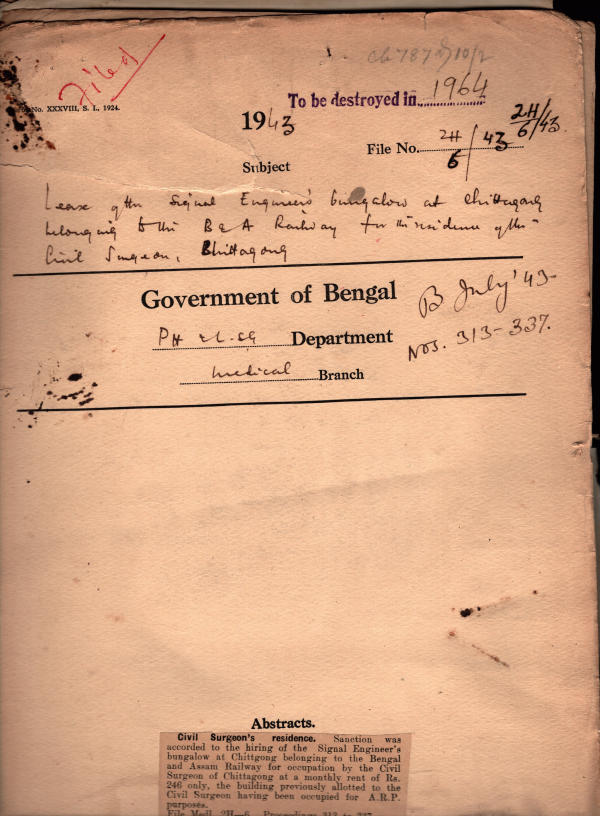 Filed
Cb 787 D/10/2
No. XXXVIII, S. I., 1924.
To be destroyed in 1964
1943
2H/6/43
File No. 2H/6/43
Subject
Lease of the Signal Engineer's bungalow at Chittagong
belonging to the B & A Railway for the residence of the
Civil Surgeon, Chittagong
Government of Bengal
B July '43
PH & LSG Department
Nos. 313-337.
Medical Branch
Abstracts.
Civil Surgeon's residence. Sanction was
accorded to the hiring of the Signal Engineer's
bungalow at Chittgong belonging to the Bengal
and Assam Railway for occupation by the Civil
Surgeon of Chittagong at a monthly rent of Rs.
246 only, the building previously allotted to the
Civil Surgeon having been occupied for A.R.P.
purposes.
File Medl. 2H—6, Proceedings 313 to 337